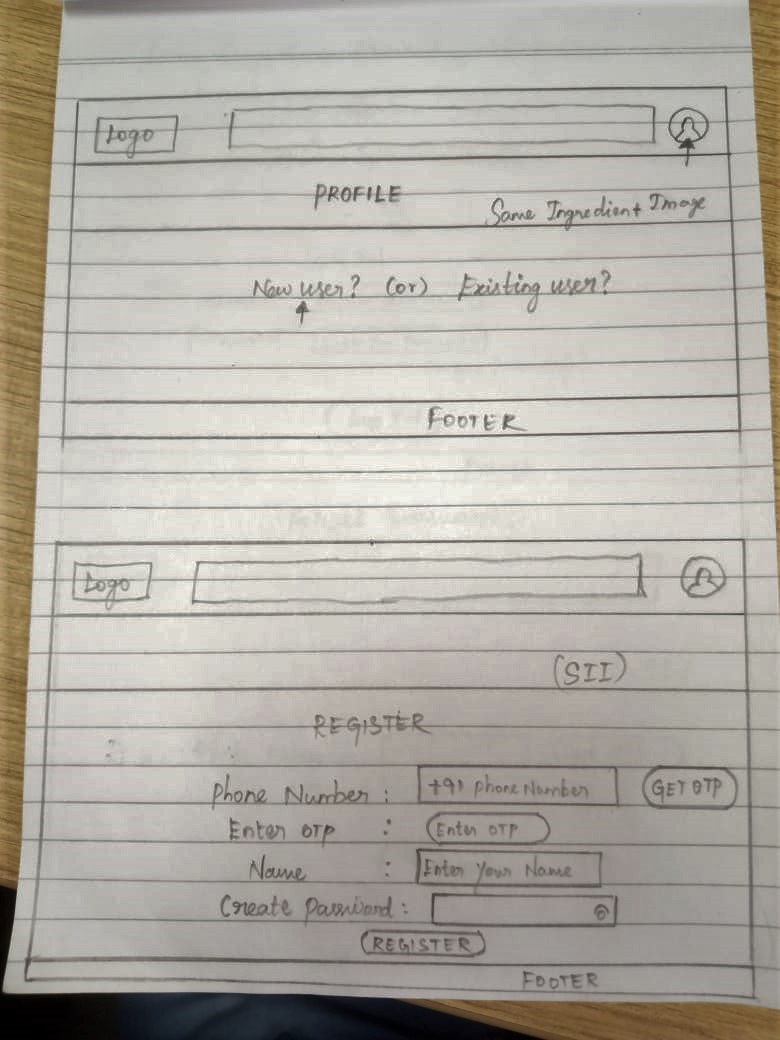 Logo
PROFILE
Same Ingredient Image
New user? (or) Existing user?
FOOTER
Logo
(SII)
REGISTER
Phone Number : +91 Phone Number GET OTP
Enter OTP : Enter OTP
Name : Enter Your Name
Create Password :
REGISTER
FOOTER